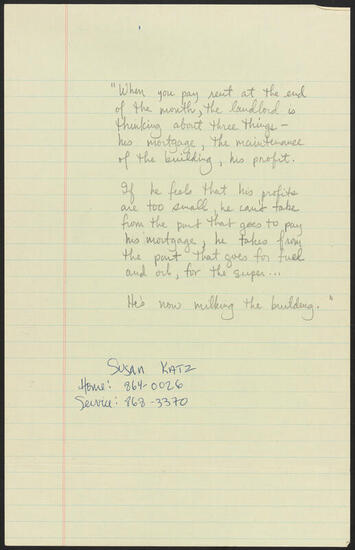 "When you pay rent at the end
of the month, the landlord is
thinking about three things —
his mortgage, the maintenance
of the building, his profit.
If he feels that his profits
are too small, he can't take
from the part that goes to pay
his mortgage, he takes from
the part that goes for fuel
and oil, for the super...
He's now milking the building."
SUSAN KATZ
Home: 864-0026
Service: 868-3370